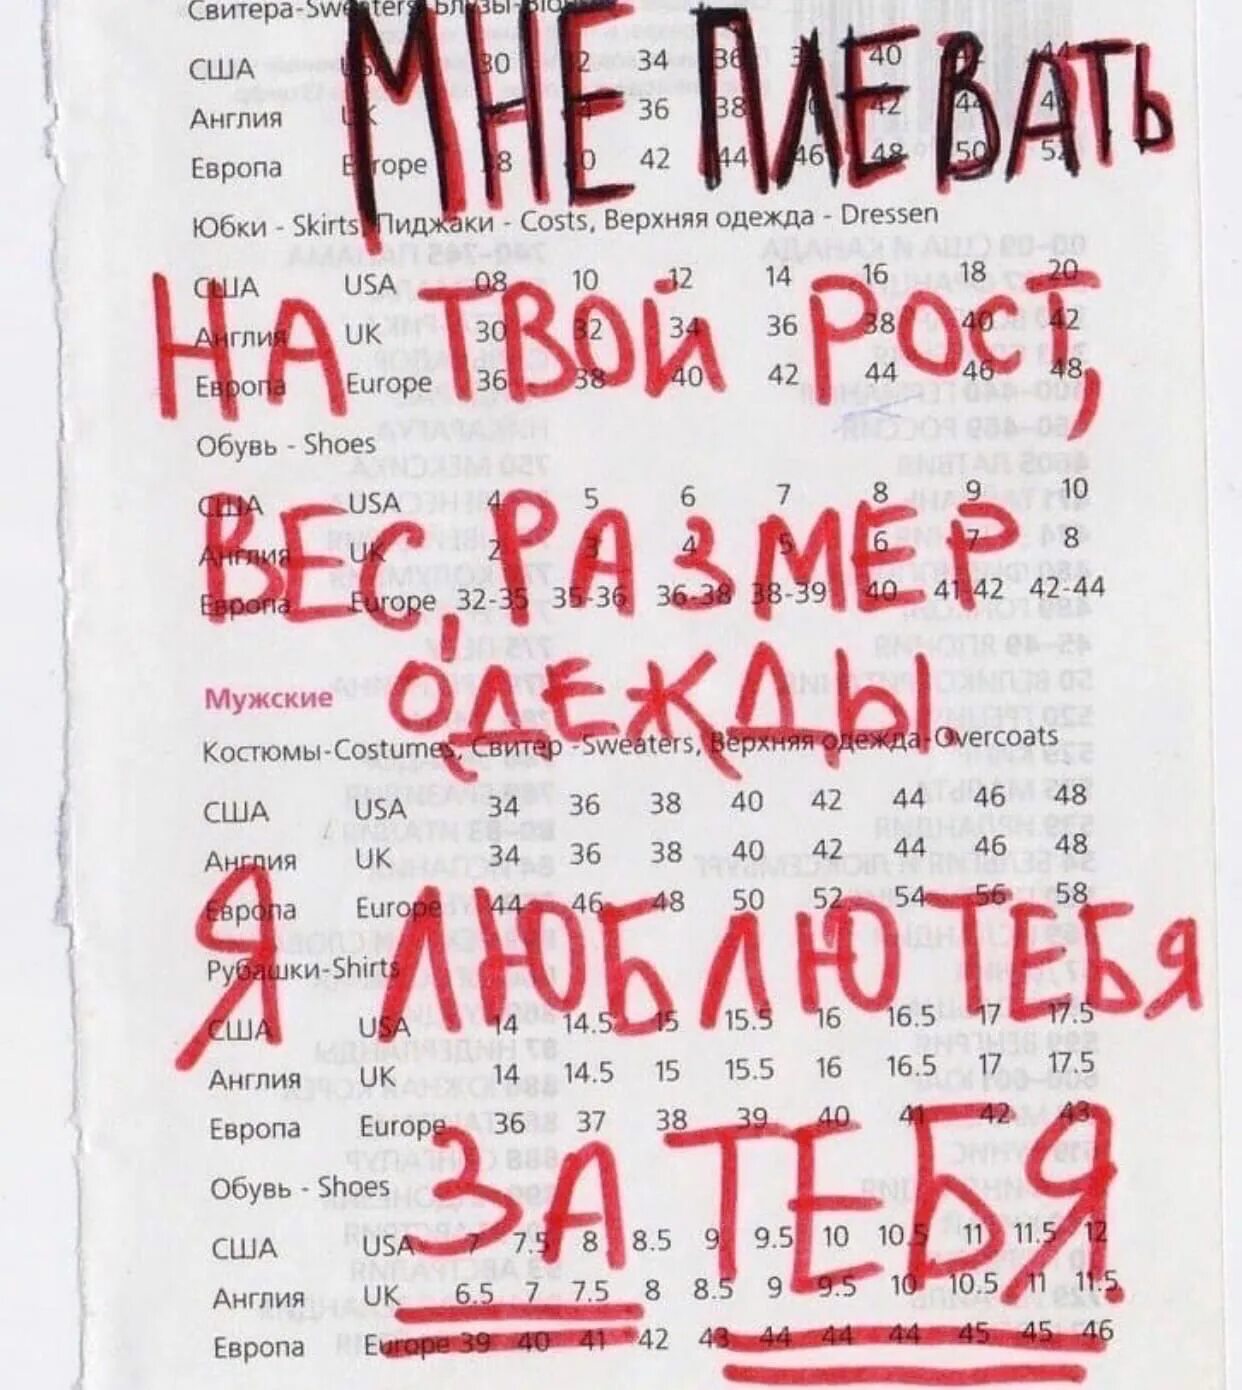 Свитера-Sweaters, Блузы-
МНЕ ПЛЕВАТЬ
США USA 30 32 34 36 38 40 42 44
Англия UK 36 38 42 44 46
Европа Europe 38 40 42 44 46 48 50 52
Юбки - Skirts, Пиджаки - Costs, Верхняя одежда - Dressen
США USA 08 10 12 14 16 18 20
НА ТВОЙ РОСТ,
Англия UK 30 32 34 36 38 40 42
Европа Europe 36 38 40 42 44 46 48
Обувь - Shoes
США USA 4 5 6 7 8 9 10
ВЕС, РАЗМЕР
Англия UK 2 3 4 5 6 7 8
Европа Europe 32-35 35-36 36-38 38-39 40 41-42 42-44
Мужские
ОДЕЖДЫ.
Костюмы-Costumes, Свитер -Sweaters, Верхняя одежда-Overcoats
США USA 34 36 38 40 42 44 46 48
Англия UK 34 36 38 40 42 44 46 48
Европа Europe 44 46 48 50 52 54 56 58
Я ЛЮБЛЮ ТЕБЯ
Рубашки-Shirts
США USA 14 14.5 15 15.5 16 16.5 17 17.5
Англия UK 14 14.5 15 15.5 16 16.5 17 17.5
Европа Europe 36 37 38 39 40 41 42 43
ЗА ТЕБЯ
Обувь - Shoes
США USA 7 7.5 8 8.5 9 9.5 10 10.5 11 11.5 12
Англия UK 6.5 7 7.5 8 8.5 9 9.5 10 10.5 11 11.5
Европа Europe 39 40 41 42 43 44 44 44 45 45 46